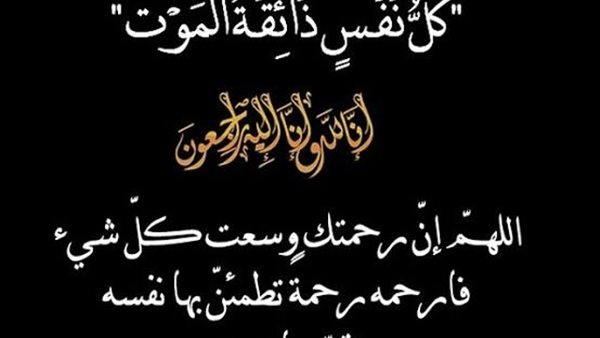 "كُلُّ نَفْسٍ ذَائِقَةُ الْمَوْتِ"
إنّا لله وإنّا إليه راجعون
اللهمّ إنّ رحمتك وسعت كلّ شيء
فارحمه رحمة تطمئنّ بها نفسه